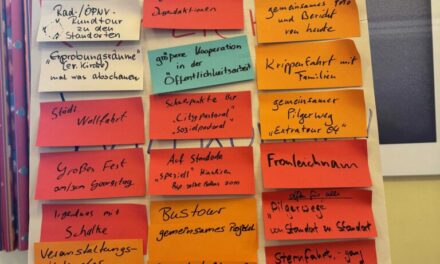 Rad-/ÖPNV-
Rundtour
zu den
Standorten
"Erprobungsräume"
(ev. Kirche)
mal was abschauen
Städt.
Wallfahrt
Großes Fest
Irgendwas mit
Schalke
Veranstaltungs-
größere Kooperation
in der
Öffentlichkeitsarbeit
Schwerpunkte für
"Citypastoral",
"Sozialpastoral"
Auf Standorte
Bustour
gemeinsames
gemeinsames Foto
und Bericht
von heute
Krippenfahrt mit
Familien
gemeinsamer
Pilgerweg
"Extratour 04"
Fronleichnam
offen für alle
Pilgerwege
von Standort zu Standort
Sternfahrt, -gang